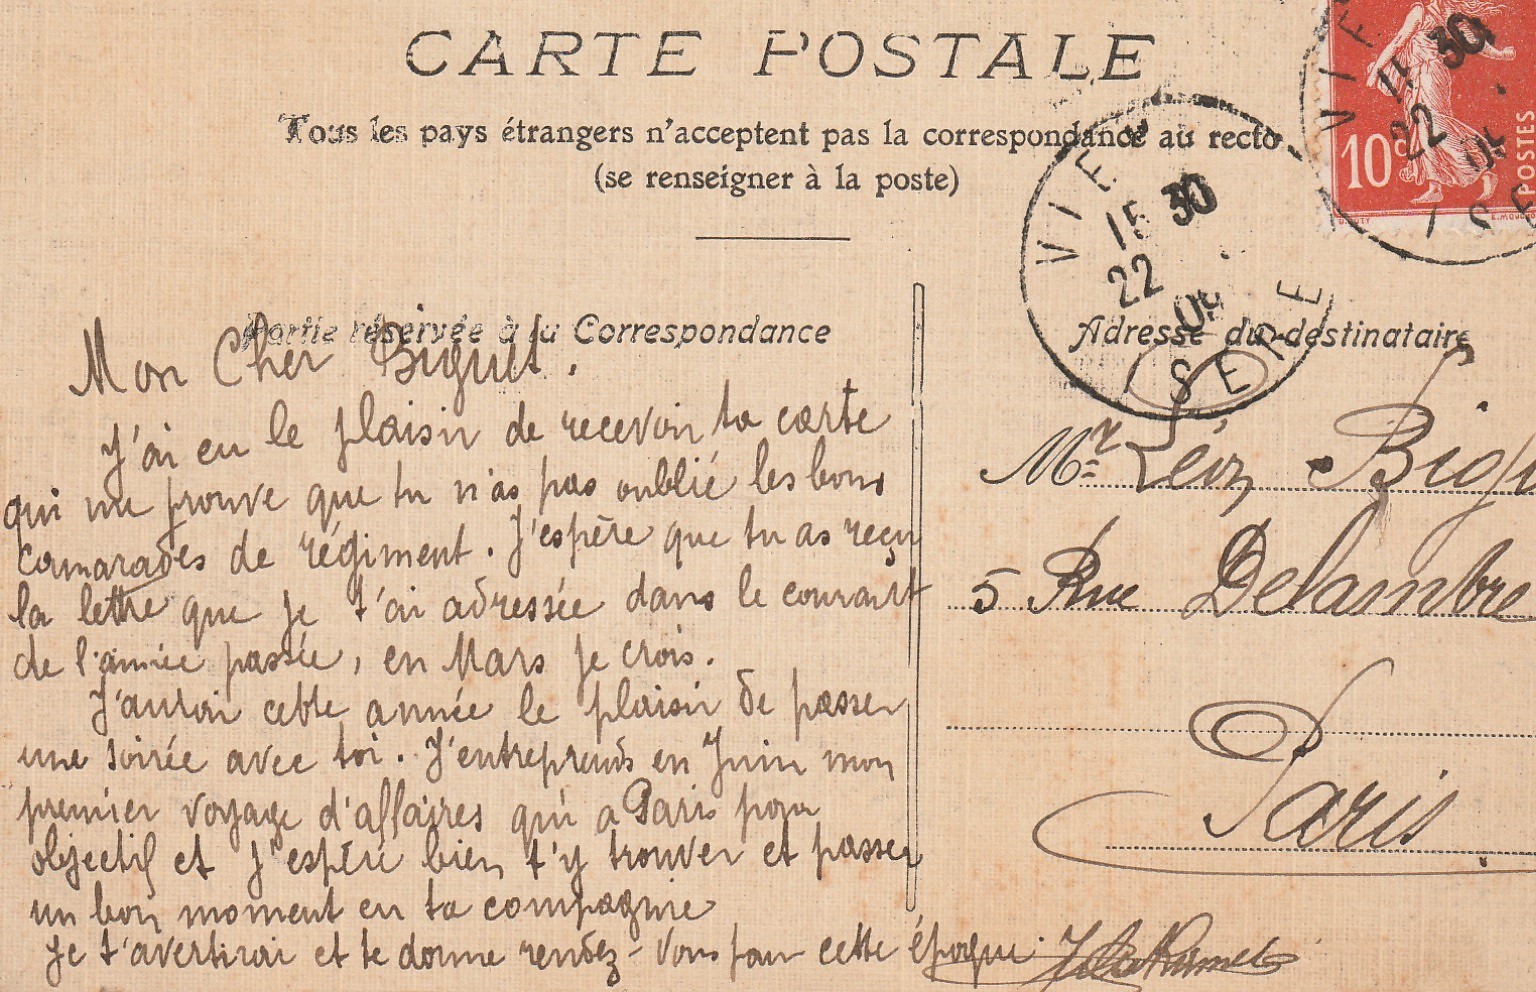 CARTE POSTALE
Tous les pays étrangers n'acceptent pas la correspondance au recto
(se renseigner à la poste)
VIE
11 30
22
10c
POSTES
ISE
VIE
15 30
22
09
ISERE
Partie réservée à la Correspondance
Mon Cher Biguet.
J'ai eu le plaisir de recevoir ta carte
qui me prouve que tu n'as pas oublié les bons
camarades de régiment. J'espère que tu as reçu
la lettre que je t'ai adressée dans le courant
de l'année passée, en Mars je crois.
J'aurai cette année le plaisir de passer
une soirée avec toi. J'entreprends en Juin mon
premier voyage d'affaires qui a Paris pour
objectif et j'espère bien t'y trouver et passer
un bon moment en ta compagnie
Je t'avertirai et te donne rendez-vous pour cette époque.
Adresse du destinataire
Mr Léon Bigu
5 Rue Delambre
Paris.